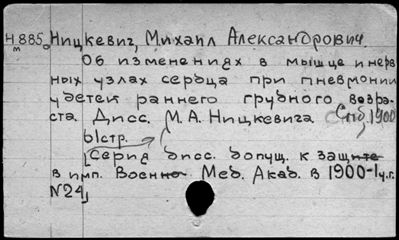 H885 Ницкевич, Михаил Александрович.
м
Об изменениях в мышце и нерв
ных узлах сердца при пневмонии
у детей раннего грудного возра-
ста. Дисс. М.А. Ницкевича Спб. 1900
61стр.
(Серия дисс. допущ. к защите
в имп. Военно Мед. Акад. в 1900-1 у.г.
N24)